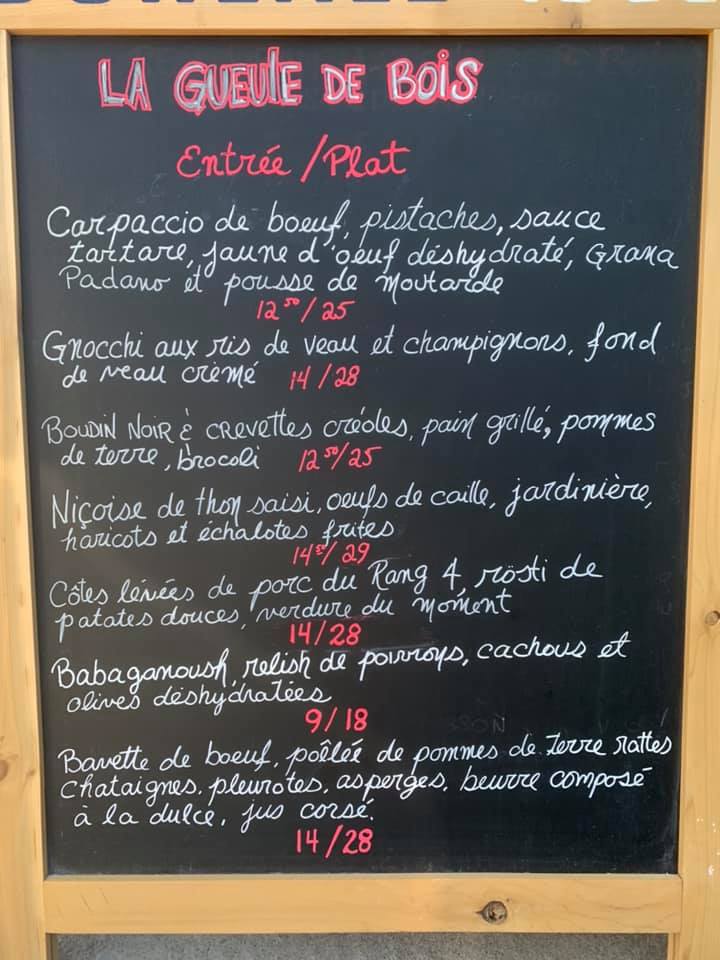 LA GUEULE DE BOIS
Entrée / Plat
Carpaccio de boeuf, pistaches, sauce
tartare, jaune d'oeuf déshydraté, Grana
Padano et pousse de moutarde
12⁵⁰/25
Gnocchi aux ris de veau et champignons, fond
de veau crèmé 14/28
BOUDIN NOIR & crevettes créoles, pain grillé, pommes
de terre, brocoli 12⁵⁰/25
Niçoise de thon saisi, oeufs de caille, jardinière,
haricots et échalotes frites
14⁵⁰/29
Côtes lévées de porc du Rang 4, rösti de
patates douces, verdure du moment
14/28
Babaganoush, relish de poivrons, cachous et
olives déshydratées
9/18
Bavette de boeuf, poêlée de pommes de terre rattes
chataignes, pleurotes, asperges, beurre composé
à la dulce, jus corsé.
14/28